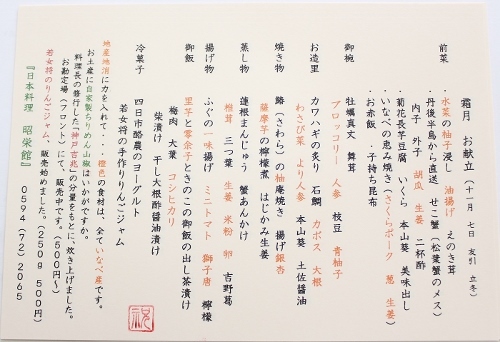 霜月 お献立（十一月 七日 友引 立冬）
前菜
・水菜の柚子浸し 油揚げ えのき茸
・丹後半島から直送 せこ蟹（松葉蟹のメス）
内子 外子 胡瓜 生姜 二杯酢
・菊花長芋豆腐 いくら 本山葵 美味出し
・いなべの恵み焼き（さくらポーク 葱 生姜）
・お赤飯 ・子持ち昆布
御椀
牡蠣真丈 舞茸
ブロッコリー 人参 枝豆 青柚子
お造里
カワハギの炙り 石鯛 カボス 大根
わさび菜 より人参 本山葵 土佐醤油
焼き物
鰆（さわら）の柚庵焼き 揚げ銀杏
薩摩芋の檸檬煮 はじかみ生姜
蒸し物
蓮根まんじゅう 蟹あんかけ
椎茸 三つ葉 生姜 米粉 卵 吉野葛
揚げ物
ふぐの一味揚げ ミニトマト 獅子唐 檸檬
御飯
里芋と零余子ときのこの御飯の出し茶漬け
梅肉 大葉 コシヒカリ
柴漬け 干し大根酢醤油漬け
冷菓子
四日市酪農のヨーグルト
若女将の手作りりんごジャム
地産地消に力を入れて・・橙色の食材は、全ていなべ産です。
お土産に自家製ちりめん山椒はいかがですか。
料理長の修行した「神戸吉兆」の分量をもとに、炊き上げました。
お勘定場（フロント）にて、販売中です。（500円～）
若女将のりんごジャム、販売始めました。（250g 500円）
『日本料理 昭栄館』 0594（72）2065